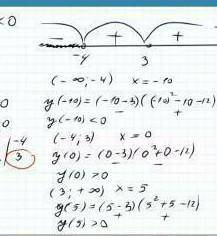 < 0
— + +
-4 3
(-∞; -4) x = -10
y(-10) = (-10-3)((-10)²-10-12)
- +
0 y(-10) < 0
0 (-4; 3) x = 0
-4 y(0) = (0-3)(0²+0-12)
3 - -
y(0) > 0
(3; +∞) x = 5
y(5) = (5-3)(5²+5-12)
+ +
y(5) > 0